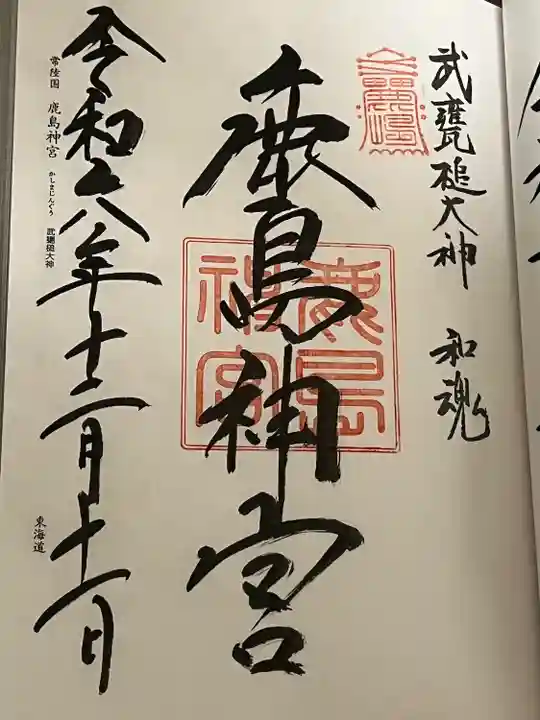 武甕槌大神 和魂
鹿島神宮
鹿島神宮
令和六年十二月十一日
常陸国 鹿島神宮 かしまじんぐう 武甕槌大神
東海道